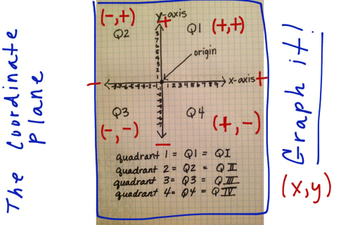 The Coordinate Plane
(-,+)
Q2
y-axis
+
Q1
(+,+)
origin
-
x-axis
+
Q3
(-,-)
Q4
(+,-)
-
quadrant 1 = Q1 = Q I
quadrant 2 = Q2 = Q II
quadrant 3 = Q3 = Q III
quadrant 4 = Q4 = Q IV
Graph it!
(x,y)